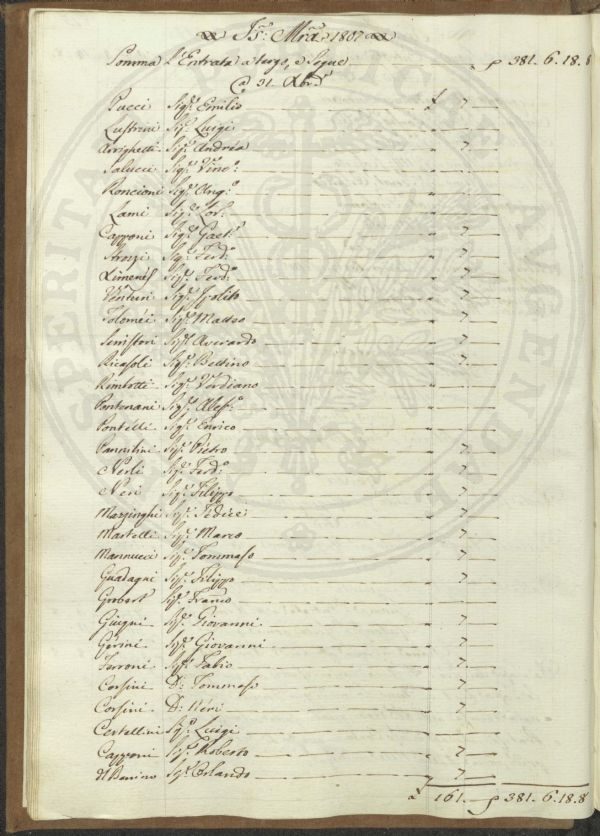 Mra 1807
Somma l'Entrata a tergo, e Segue 381. 6. 18. 8
31. Xbre
Pucci Sigr. Emilio £ 7
Lustrini Sigr. Luigi
Arrighetti Sigr. Andrea 7
Salucci Sigr. Vinco:
Roncioni Sigr. Ango.
Lami Sigr. Lor.
Capponi Sigr. Gaeto. 7
Strozzi Sigr. Ferdo. 7
Ximenes Sigr. Ferdo. 7
Venturi Sigr. Ipolito 7
Tolomei Sigr. Matteo 7
Serristori Sigr. Averardo 7
Ricasoli Sigr. Bettino 7
Rimbotti Sigr. Verdiano
Pontenani Sigr. Alesso.
Pontelli Sigr. Enrico
Pannilini Sigr. Pietro 7
Nerli Sigr. Ferdo. 7
Neri Sigr. Filippo 7
Marzinghi Sigr. Fedice 7
Martelli Sigr. Marco 7
Mannucci Sigr. Tommaso 7
Guadagni Sigr. Filippo 7
Grobert Sigr. Franco
Giugni Sigr. Giovanni 7
Gerini Sigr. Giovanni 7
Ferroni Sigr. Fabio 7
Corsini Dn: Tommaso 7
Corsini Dn: Neri 7
Certellini Sigr. Luigi
Capponi Sigr. Roberto 7
Sigr. Orlando 7
£ 161. 381. 6. 18. 8